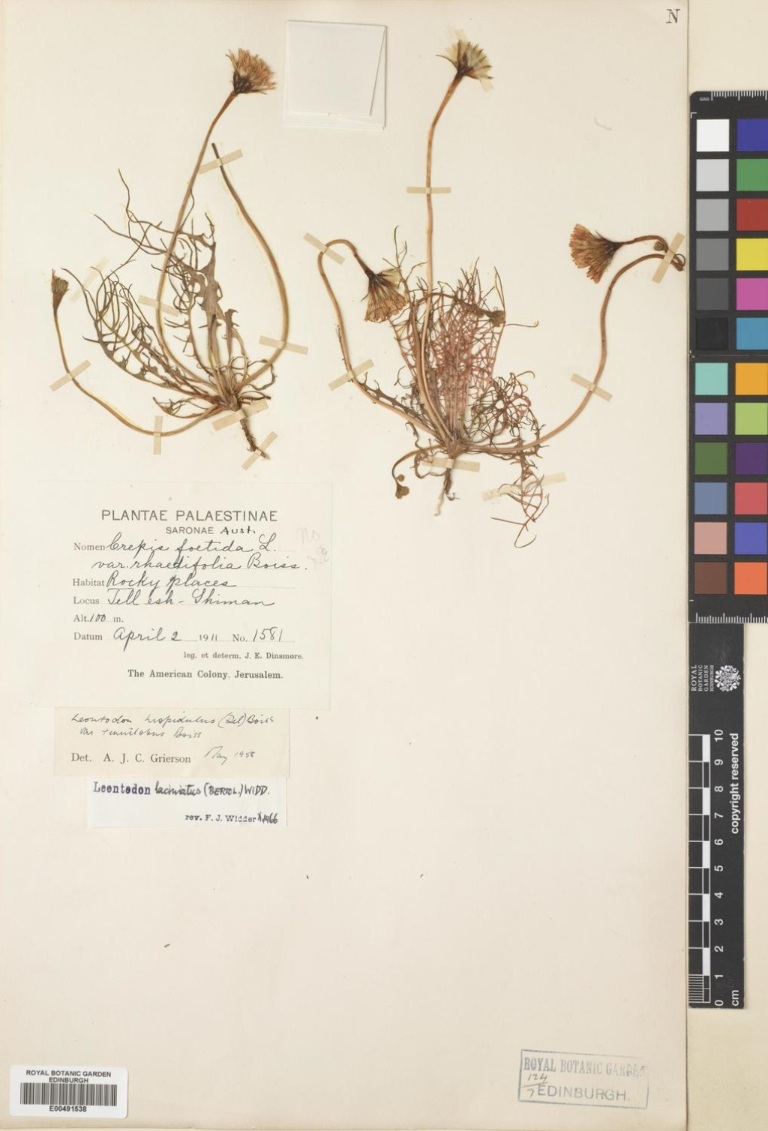 N
PLANTAE PALAESTINAE
SARONAE Aust.
Nomen Crepis foetida L.
var. rhaedifolia Boiss.
Habitat Rocky places
Locus Tell esh-Shiman
Alt. 100 m.
Datum April 2 1911 No. 1581
leg. et determ. J. E. Dinsmore.
The American Colony. Jerusalem.
Leontodon hispidulus (Del) Boiss
var tenuilobus Boiss
Det. A. J. C. Grierson May 1958
Leontodon laciniatus (BERTOL.) WIDD.
rev. F. J. Widder 1966
ROYAL BOTANIC GARDEN
EDINBURGH
E00491538
ROYAL BOTANIC GARDEN
124
7 EDINBURGH.
ROYAL
BOTANIC
GARDEN
EDINBURGH
copyright reserved
0 1 2 3 4 5 6 7 8 9 10
cm